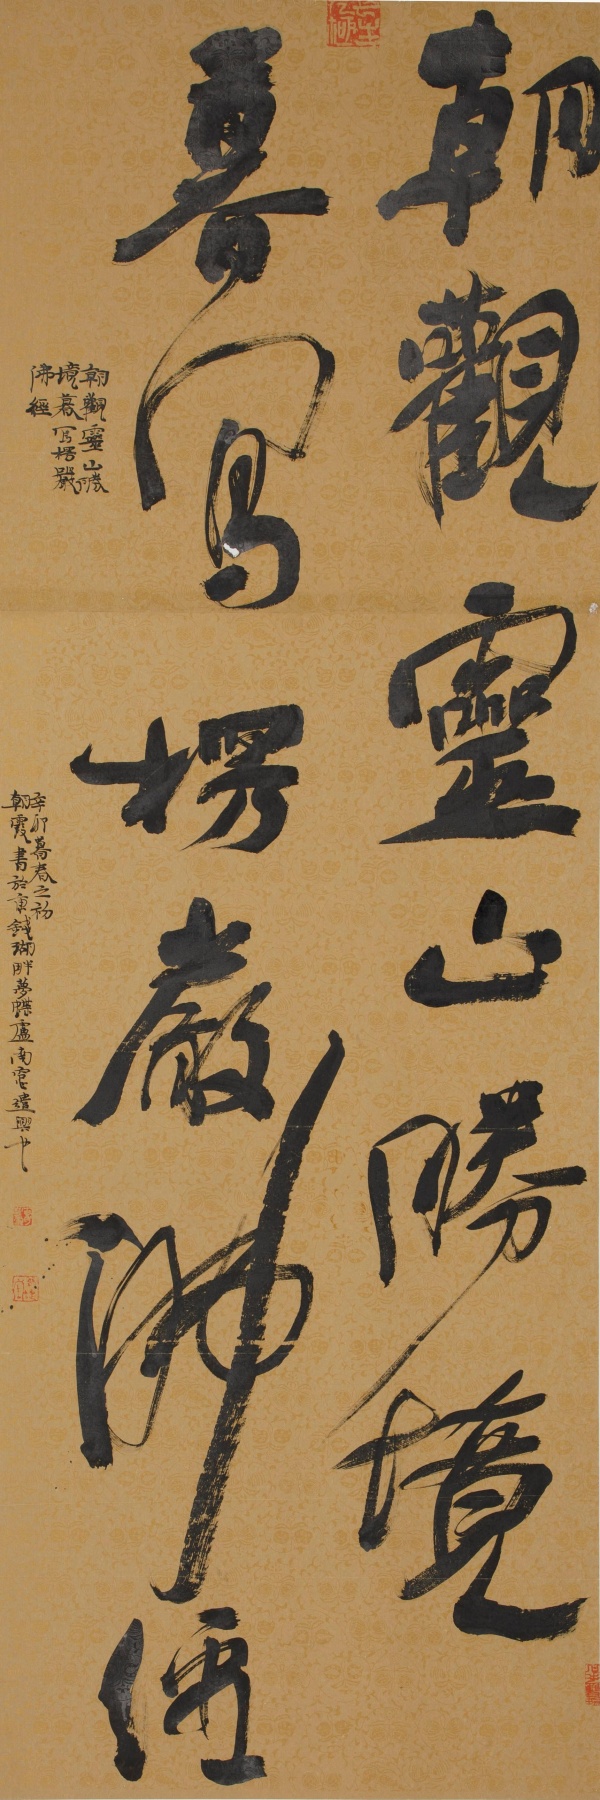 朝觀靈山勝境
暮写楞嚴佛經
朝觀靈山勝
境暮写楞嚴
佛經
辛卯暮春之初
朝霞書於東錢湖畔夢蝶廬南窓遣興也